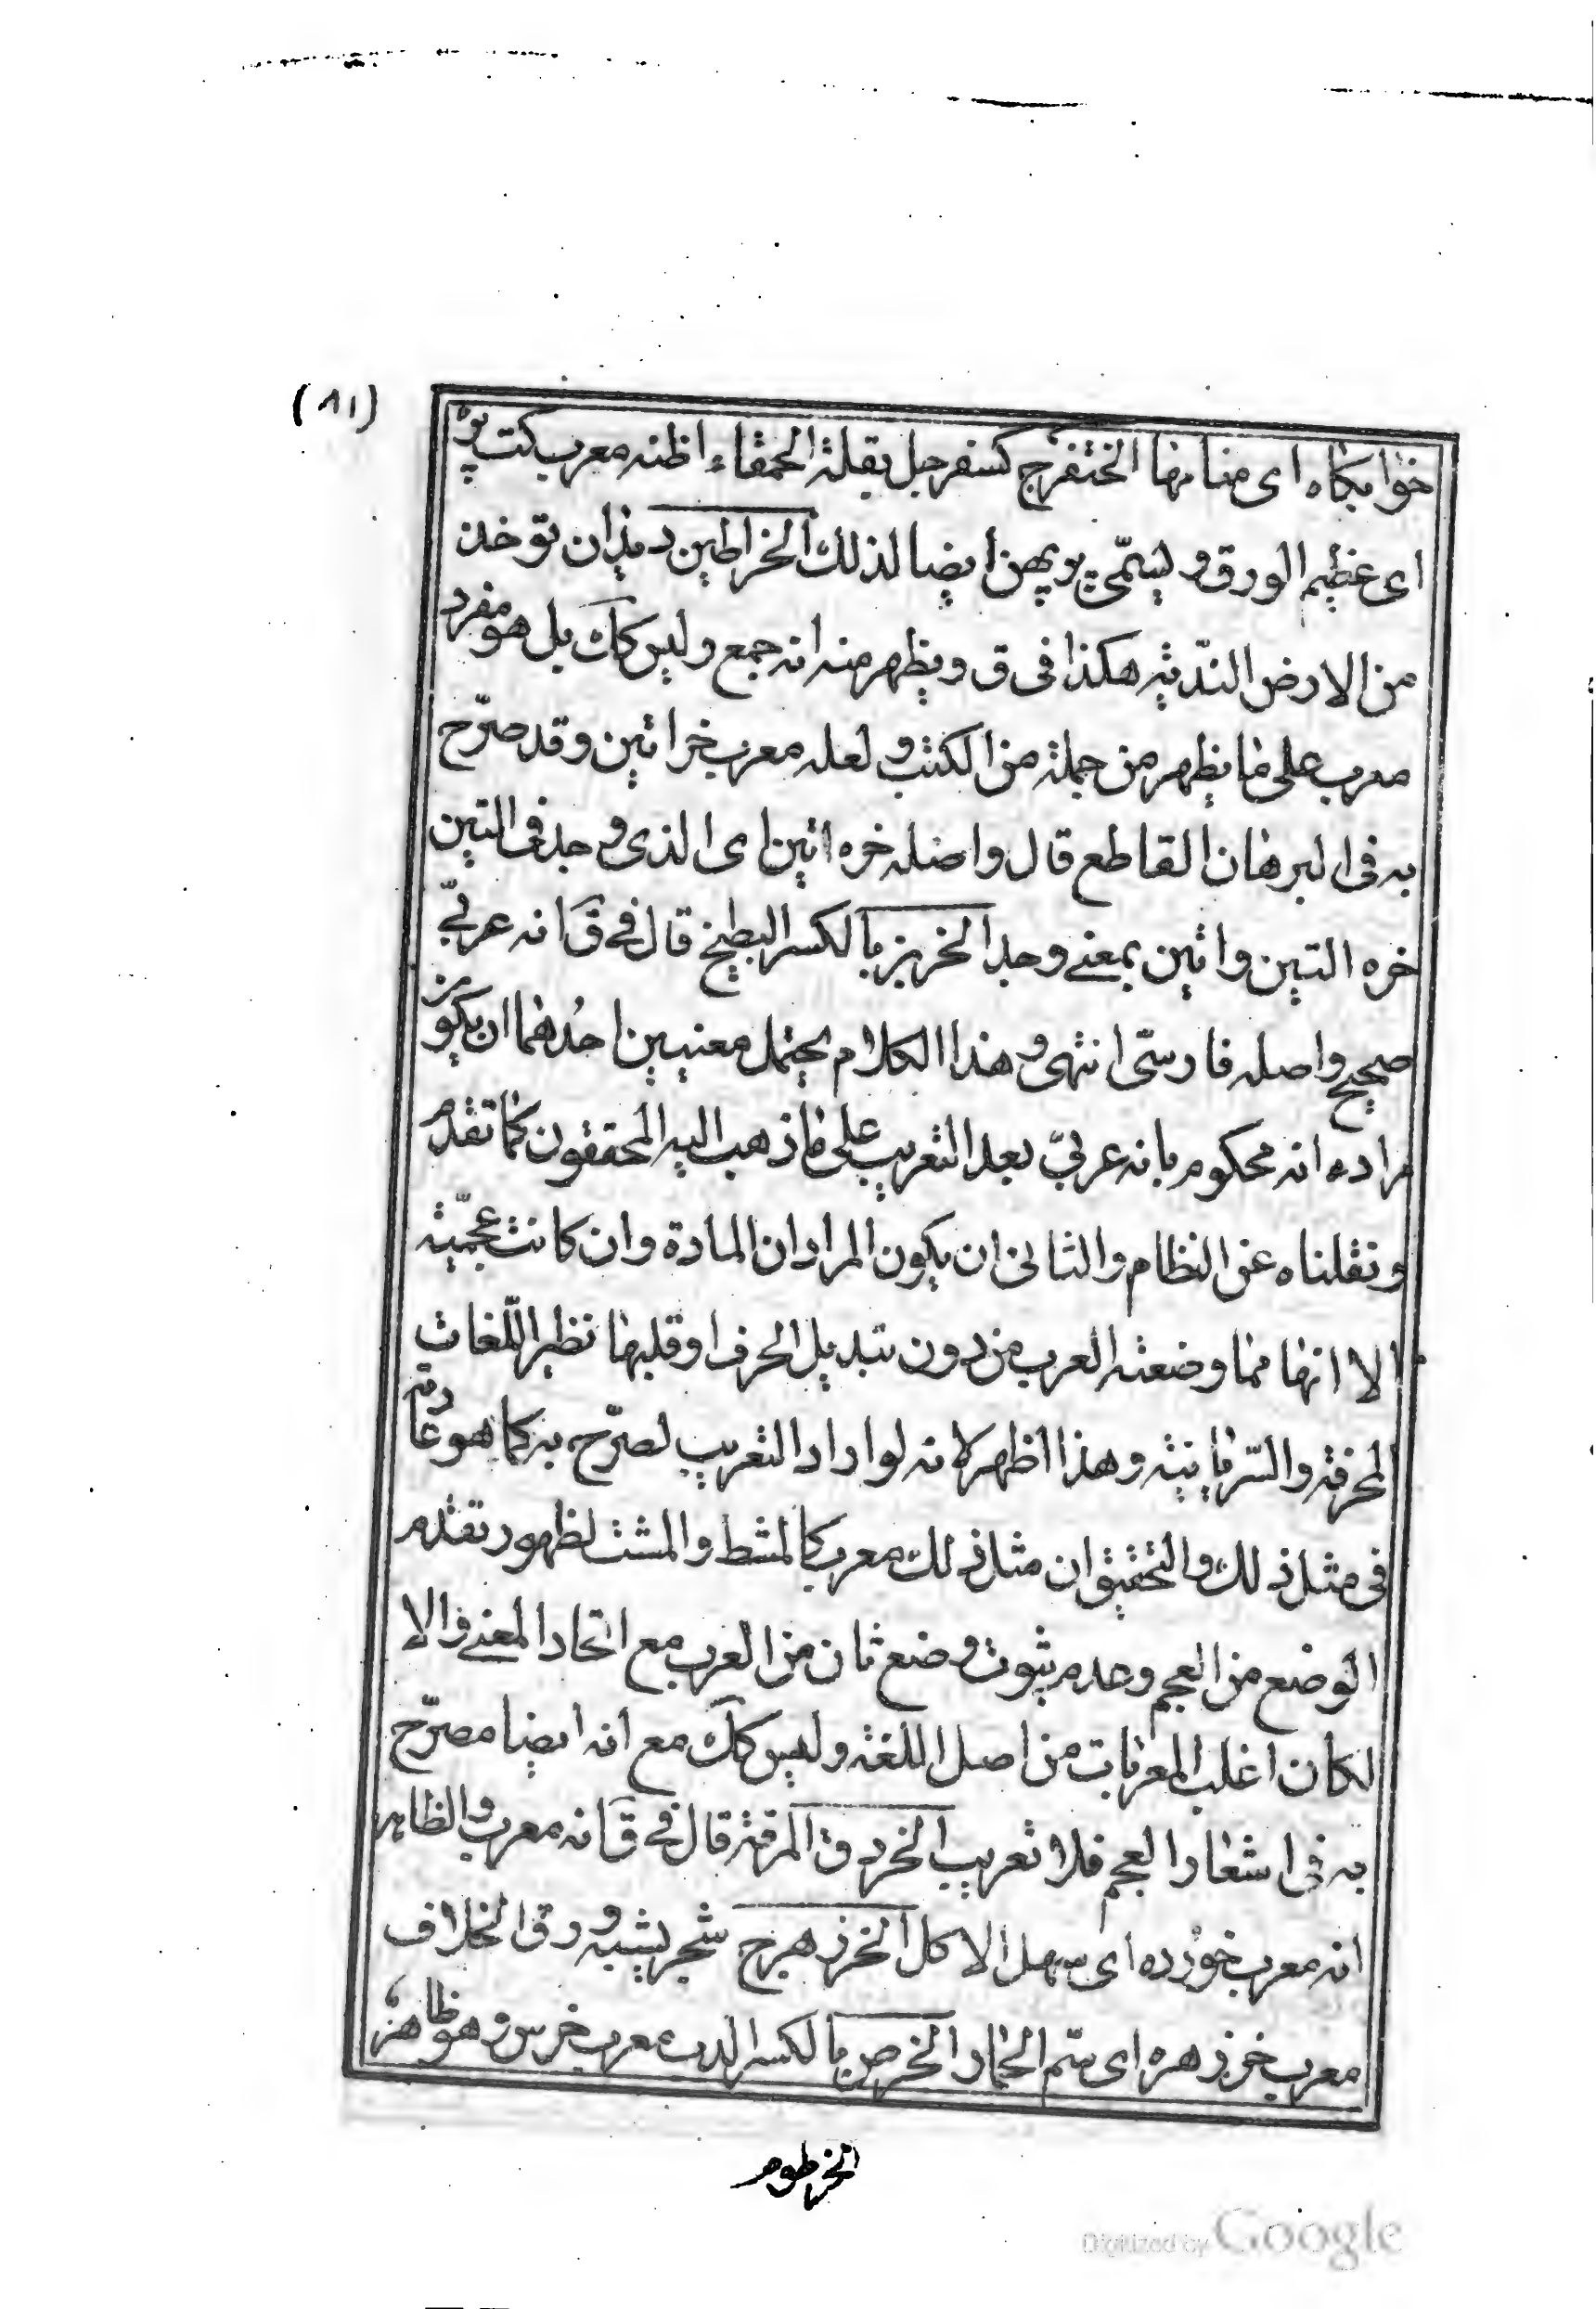 (٨١)
خوابكاه اى منامها الختفرج كسفرجل بقلة الحمقاء اظنه معرب كت پوه
اى عظيم الورق ويسمّى پرپهن ايضا لذلك الخراطين ديدان توخذ
من الارض النديّة هكذا فى ق ويظهر منه انه جمع وليس كك بل هو مفرد
معرب على ما يظهر من جملة من الكتب ولعله معرب خراتين وقد صرّح
به فى البرهان القاطع قال واصله خره اتين اى الذى وجد فى التين
خره التين واتين بمعنى وجد الخربز بالكسر البطيخ قال فى ق انه عربىّ
صحيح واصله فارسىّ انتهى وهذا الكلام يحتمل معنيين احدهما ان يكون من
مراده انه محكوم بانه عربىّ بعد التعريب على ما ذهب اليه المحققون كما تقدم
ونقلناه عن النظام والثانى ان يكون المراد ان المادة وان كانت عجميّة
الا انها مما وضعته العرب من دون تبديل الحرف او قلبها نظير اللّغات
المحرفة والسّريانيّة وهذا اظهر لانه لو اراد التعريب لصرّح به كما هو عادته
فى مثل ذلك والتحقيق ان مثل ذلك معرب كالمشط والمشت لظهور تقدم
الوضع من العجم وعدم ثبوت وضع ثان من العرب مع اتحاد المعنى والا
لكان اغلب المعربات من اصل اللغة وليس كك مع انه ايضا مصرّح
به فى اشعار العجم فلا تعريب الخردق المرقة قال فى ق انه معرب والظاهر
انه معرب خورده اى سهل الاكل الخرزهرج شجر يشبه ورق الخلاف
معرب خرزهره اى سمّ الحمار الخرص بالكسر الدب معرب خرس وهو ظاهر
الخرطوم
Digitized by Google